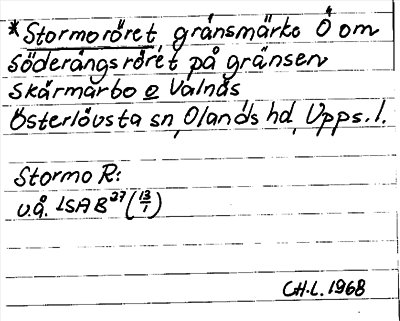 *Stormoröret gränsmärke Ö om
söderängsröret på gränsen
Skärmarbo o Valnäs
Österlövsta sn, Olands hd, Upps. l.
Stormo R:
u.å. LSA B27 (13/1)
CH.L. 1968